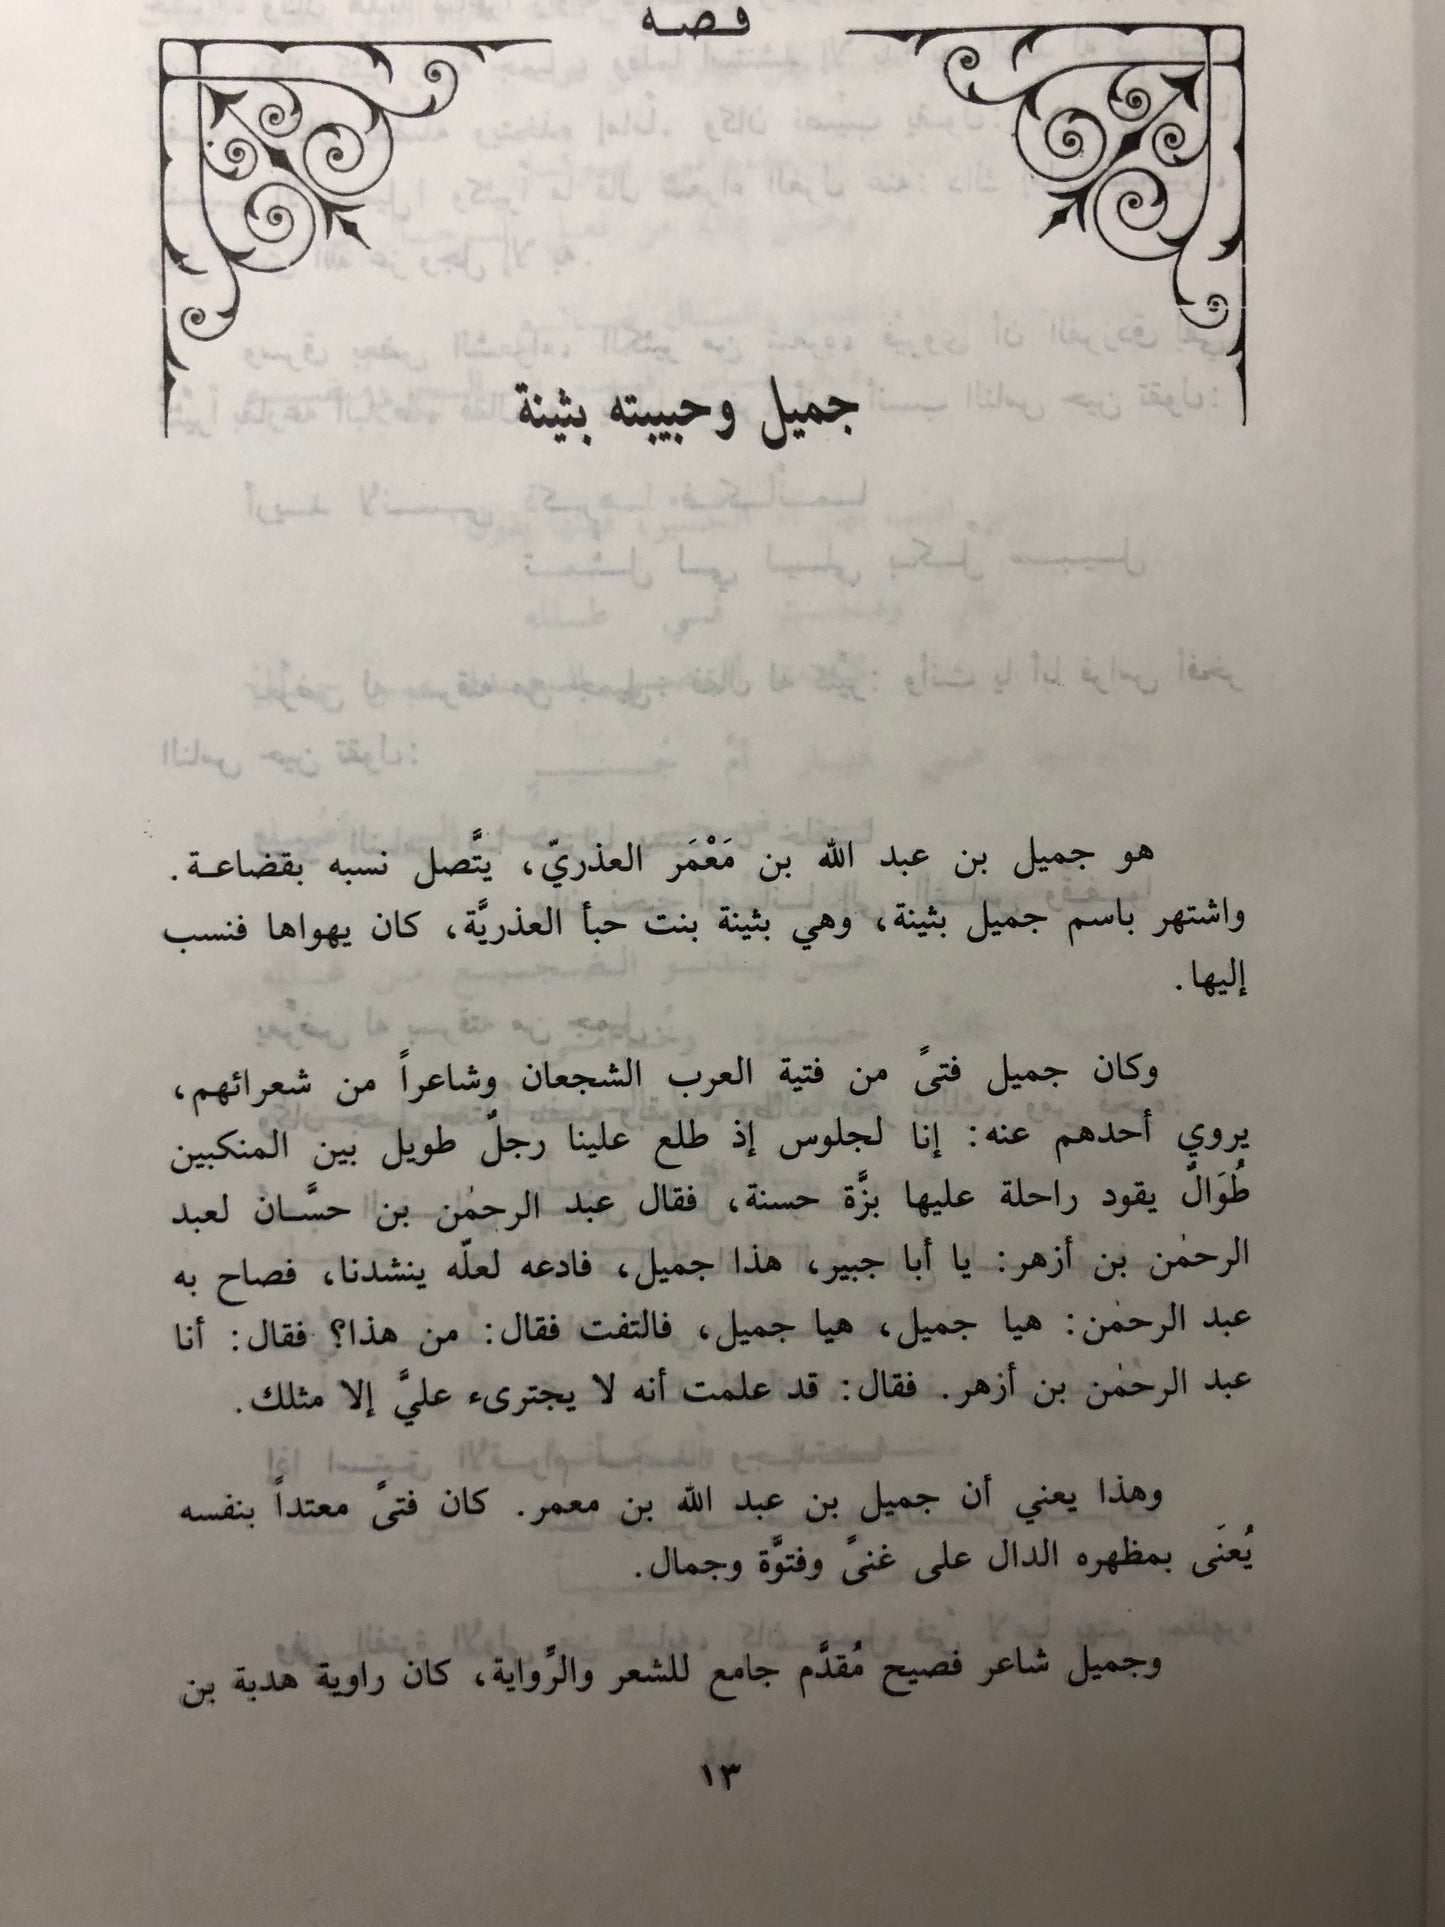 قصة
جميل وحبيبته بثينة
هو جميل بن عبد الله بن مَعْمَر العذريّ، يتَّصل نسبه بقضاعة.
واشتهر باسم جميل بثينة، وهي بثينة بنت حبأ العذريَّة، كان يهواها فنسب
إليها.
وكان جميل فتىً من فتية العرب الشجعان وشاعراً من شعرائهم،
يروي أحدهم عنه: إنا لجلوس إذ طلع علينا رجلٌ طويل بين المنكبين
طُوَالٌ يقود راحلة عليها بزَّة حسنة، فقال عبد الرحمٰن بن حسَّان لعبد
الرحمٰن بن أزهر: يا أبا جبير، هذا جميل، فادعه لعلّه ينشدنا، فصاح به
عبد الرحمٰن: هيا جميل، هيا جميل، فالتفت فقال: من هذا؟ فقال: أنا
عبد الرحمٰن بن أزهر. فقال: قد علمت أنه لا يجترىء عليَّ إلا مثلك.
وهذا يعني أن جميل بن عبد الله بن معمر. كان فتىً معتداً بنفسه
يُعنَى بمظهره الدال على غنىً وفتوَّة وجمال.
وجميل شاعر فصيح مُقدَّم جامع للشعر والرِّواية، كان راوية هدبة بن
١٣